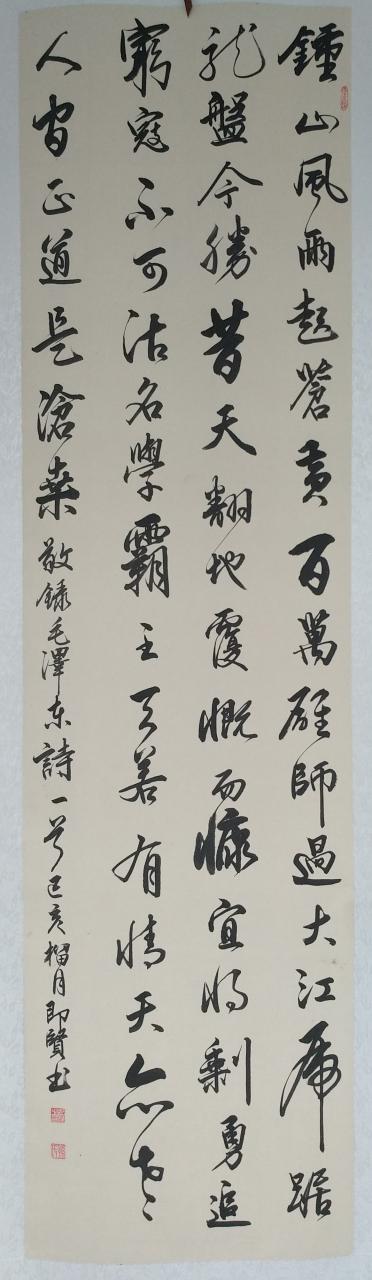 鍾山風雨起蒼黄百萬雄師過大江虎踞
龍盤今勝昔天翻地覆慨而慷宜將剩勇追
窮寇不可沽名學霸王天若有情天亦老
人間正道是滄桑敬録毛澤東詩一首己亥榴月即賢書